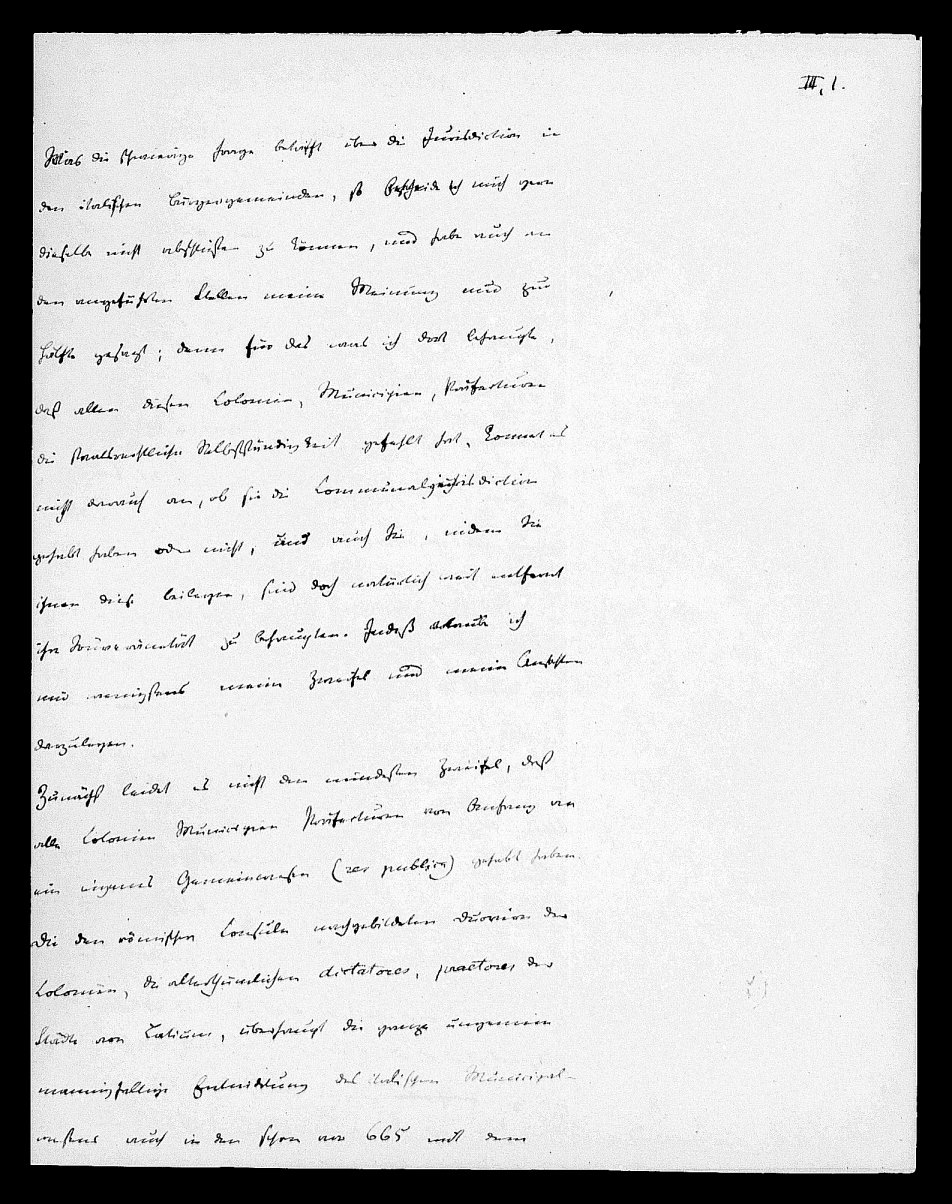 III, 1.
Was die schwierige Frage betrifft über die Jurisdiction in
den italischen Bürgergemeinden, so bescheide ich mich gern
dieselbe nicht abschließen zu können, und habe auch an
den angeführten Stellen meine Meinung nur zur
Hälfte gesagt; denn für das was ich dort behaupte,
daß allen diesen Colonien, Municipien, Präfecturen
die staatsrechtliche Selbstständigkeit gefehlt hat, kommt es
nicht darauf an, ob sie die Communaljurisdiction
gehabt haben oder nicht, und auch Sie, indem Sie
ihnen diese beilegen, sind doch natürlich weit entfernt
ihre Souveränetät zu behaupten. Indeß erlaube ich
mir wenigstens meine Zweifel und meine Ansichten
darzulegen.
Zunächst leidet es nicht den mindesten Zweifel, daß
alle Colonien Municipien Präfecturen von Anfang an
ein eigenes Gemeinwesen (res publica) gehabt haben.
Die den römischen Consuln nachgebildeten Duovirn der
Colonien, die alterthümlichen dictatores, praetores der
Städte von Latium, überhaupt die ganze ungemein
mannigfaltige Entwicklung des italischen Municipal-
wesens auch in den schon vor 665 mit dem